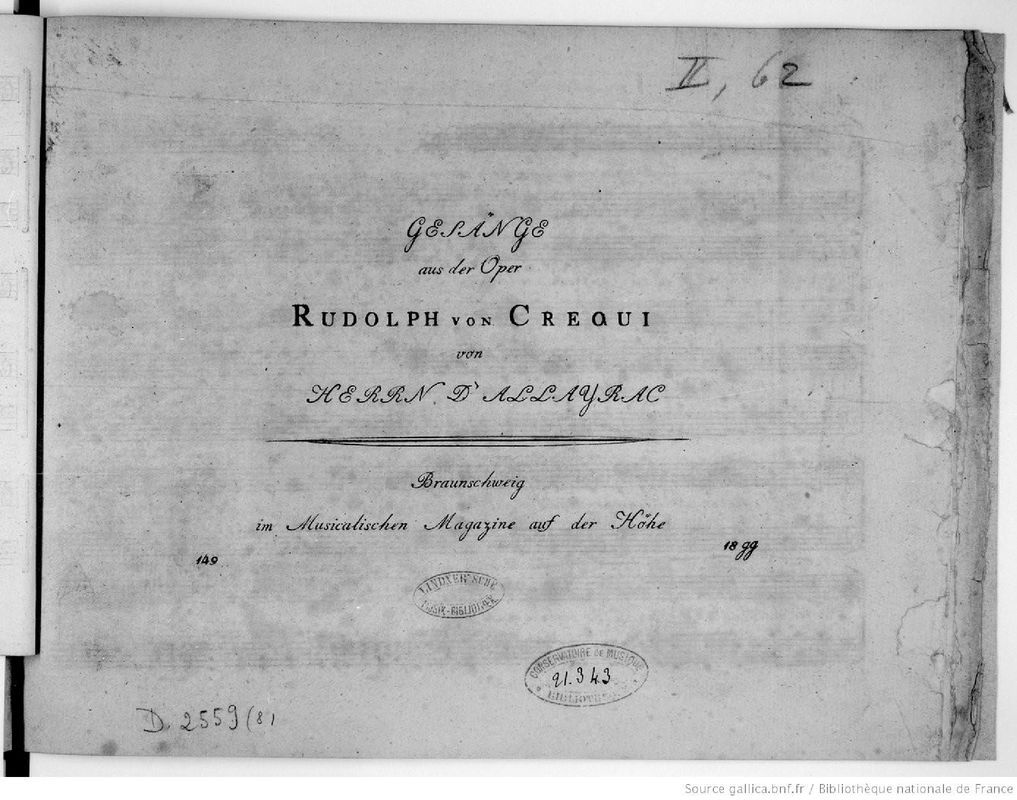 II, 62
GESÄNGE
aus der Oper
RUDOLPH VON CREQUI
von
HERRN D'ALLAYRAC
Braunschweig
im Musicalischen Magazine auf der Höhe
149
18 gg
LINDNER'SCHE
MUSIK-BIBLIOTHEK
CONSERVATOIRE DE MUSIQUE
21.343
BIBLIOTHÈQUE
D. 2559 (8)
Source gallica.bnf.fr / Bibliothèque nationale de France